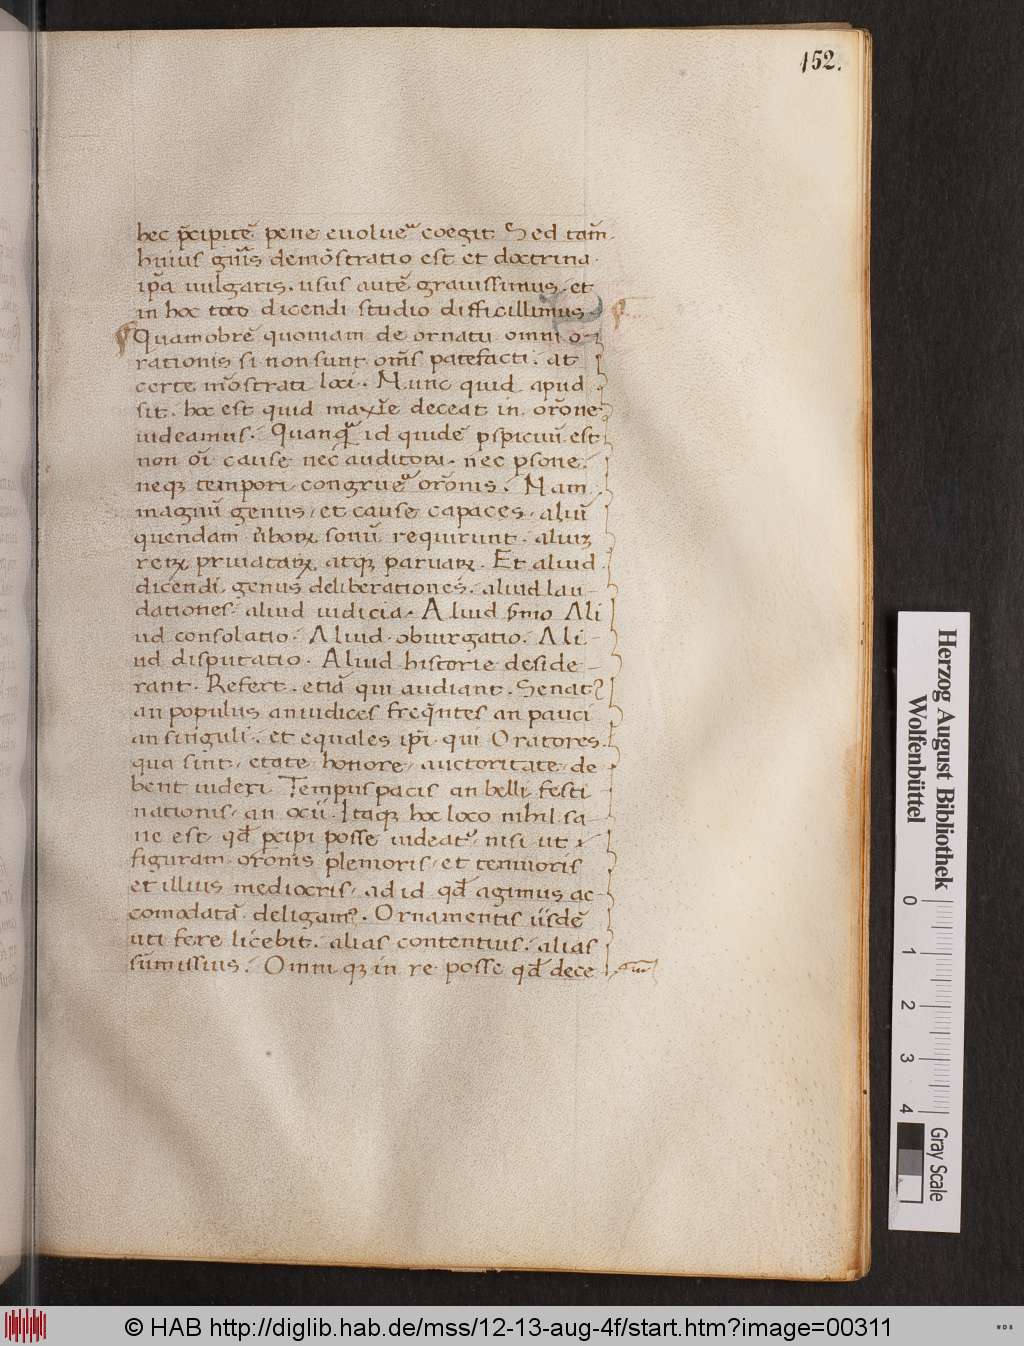 152.
hec p̄cipitē pene euolueᷓ coegit Sed tam̄
huius gn̄is demōstratio est et doctrina.
ip̄a uulgaris. usus autē grauissimus. et
in hoc toto dicendi studio difficillimus.
Quamobrē quoniam de ornatu omni o-
rationis si non sunt om̄s patefacti. at
certe mōstrati loci. Nunc quid apud
sit. hoc est quid maxīe deceat in or̄one
uideamus. Quanqᷓ id quidē p̱spicuū est
non oī cause nec auditori. nec p̱sone.
neqꝫ tempori congrueᷓ or̄onis. Nam
magnū genus et cause capaces, aliū
quendam ūboꝝ sonū requirunt. aliuꝫ
reꝝ priuataꝝ atqꝫ paruaꝝ. Et aliud
dicendi genus deliberationes. aliud lau-
dationes. aliud iudicia. Aliud s̄mo Ali
ud consolatio. Aliud obiurgatio. Ali-
ud disputatio. Aliud historie deside-
rant. Refert. etiā qui audiant. Senatꝰ
an populus an iudices freq̄ntes an pauci
an singuli. et equales ip̄i qui Oratores.
qua sint, etate, honore, auctoritate, de
bent uideri Tempus pacis an belli festi
nationis, an ocii. Itaqꝫ hoc loco nihil sa-
ne est, qd̄ p̱cipi posse uideatᷣ, nisi ut
figuram or̄onis plenioris, et tenuioris
et illius mediocris, ad id qd̄ agimus ac-
comodatā deligamꝰ. Ornamentis iisdē
uti fere licebit. alias contentius. alias
sūmissius. Omni qꝫ in re posse qd̄ dece
Herzog August Bibliothek
Wolfenbüttel
0 1 2 3 4
Gray Scale
© HAB http://diglib.hab.de/mss/12-13-aug-4f/start.htm?image=00311